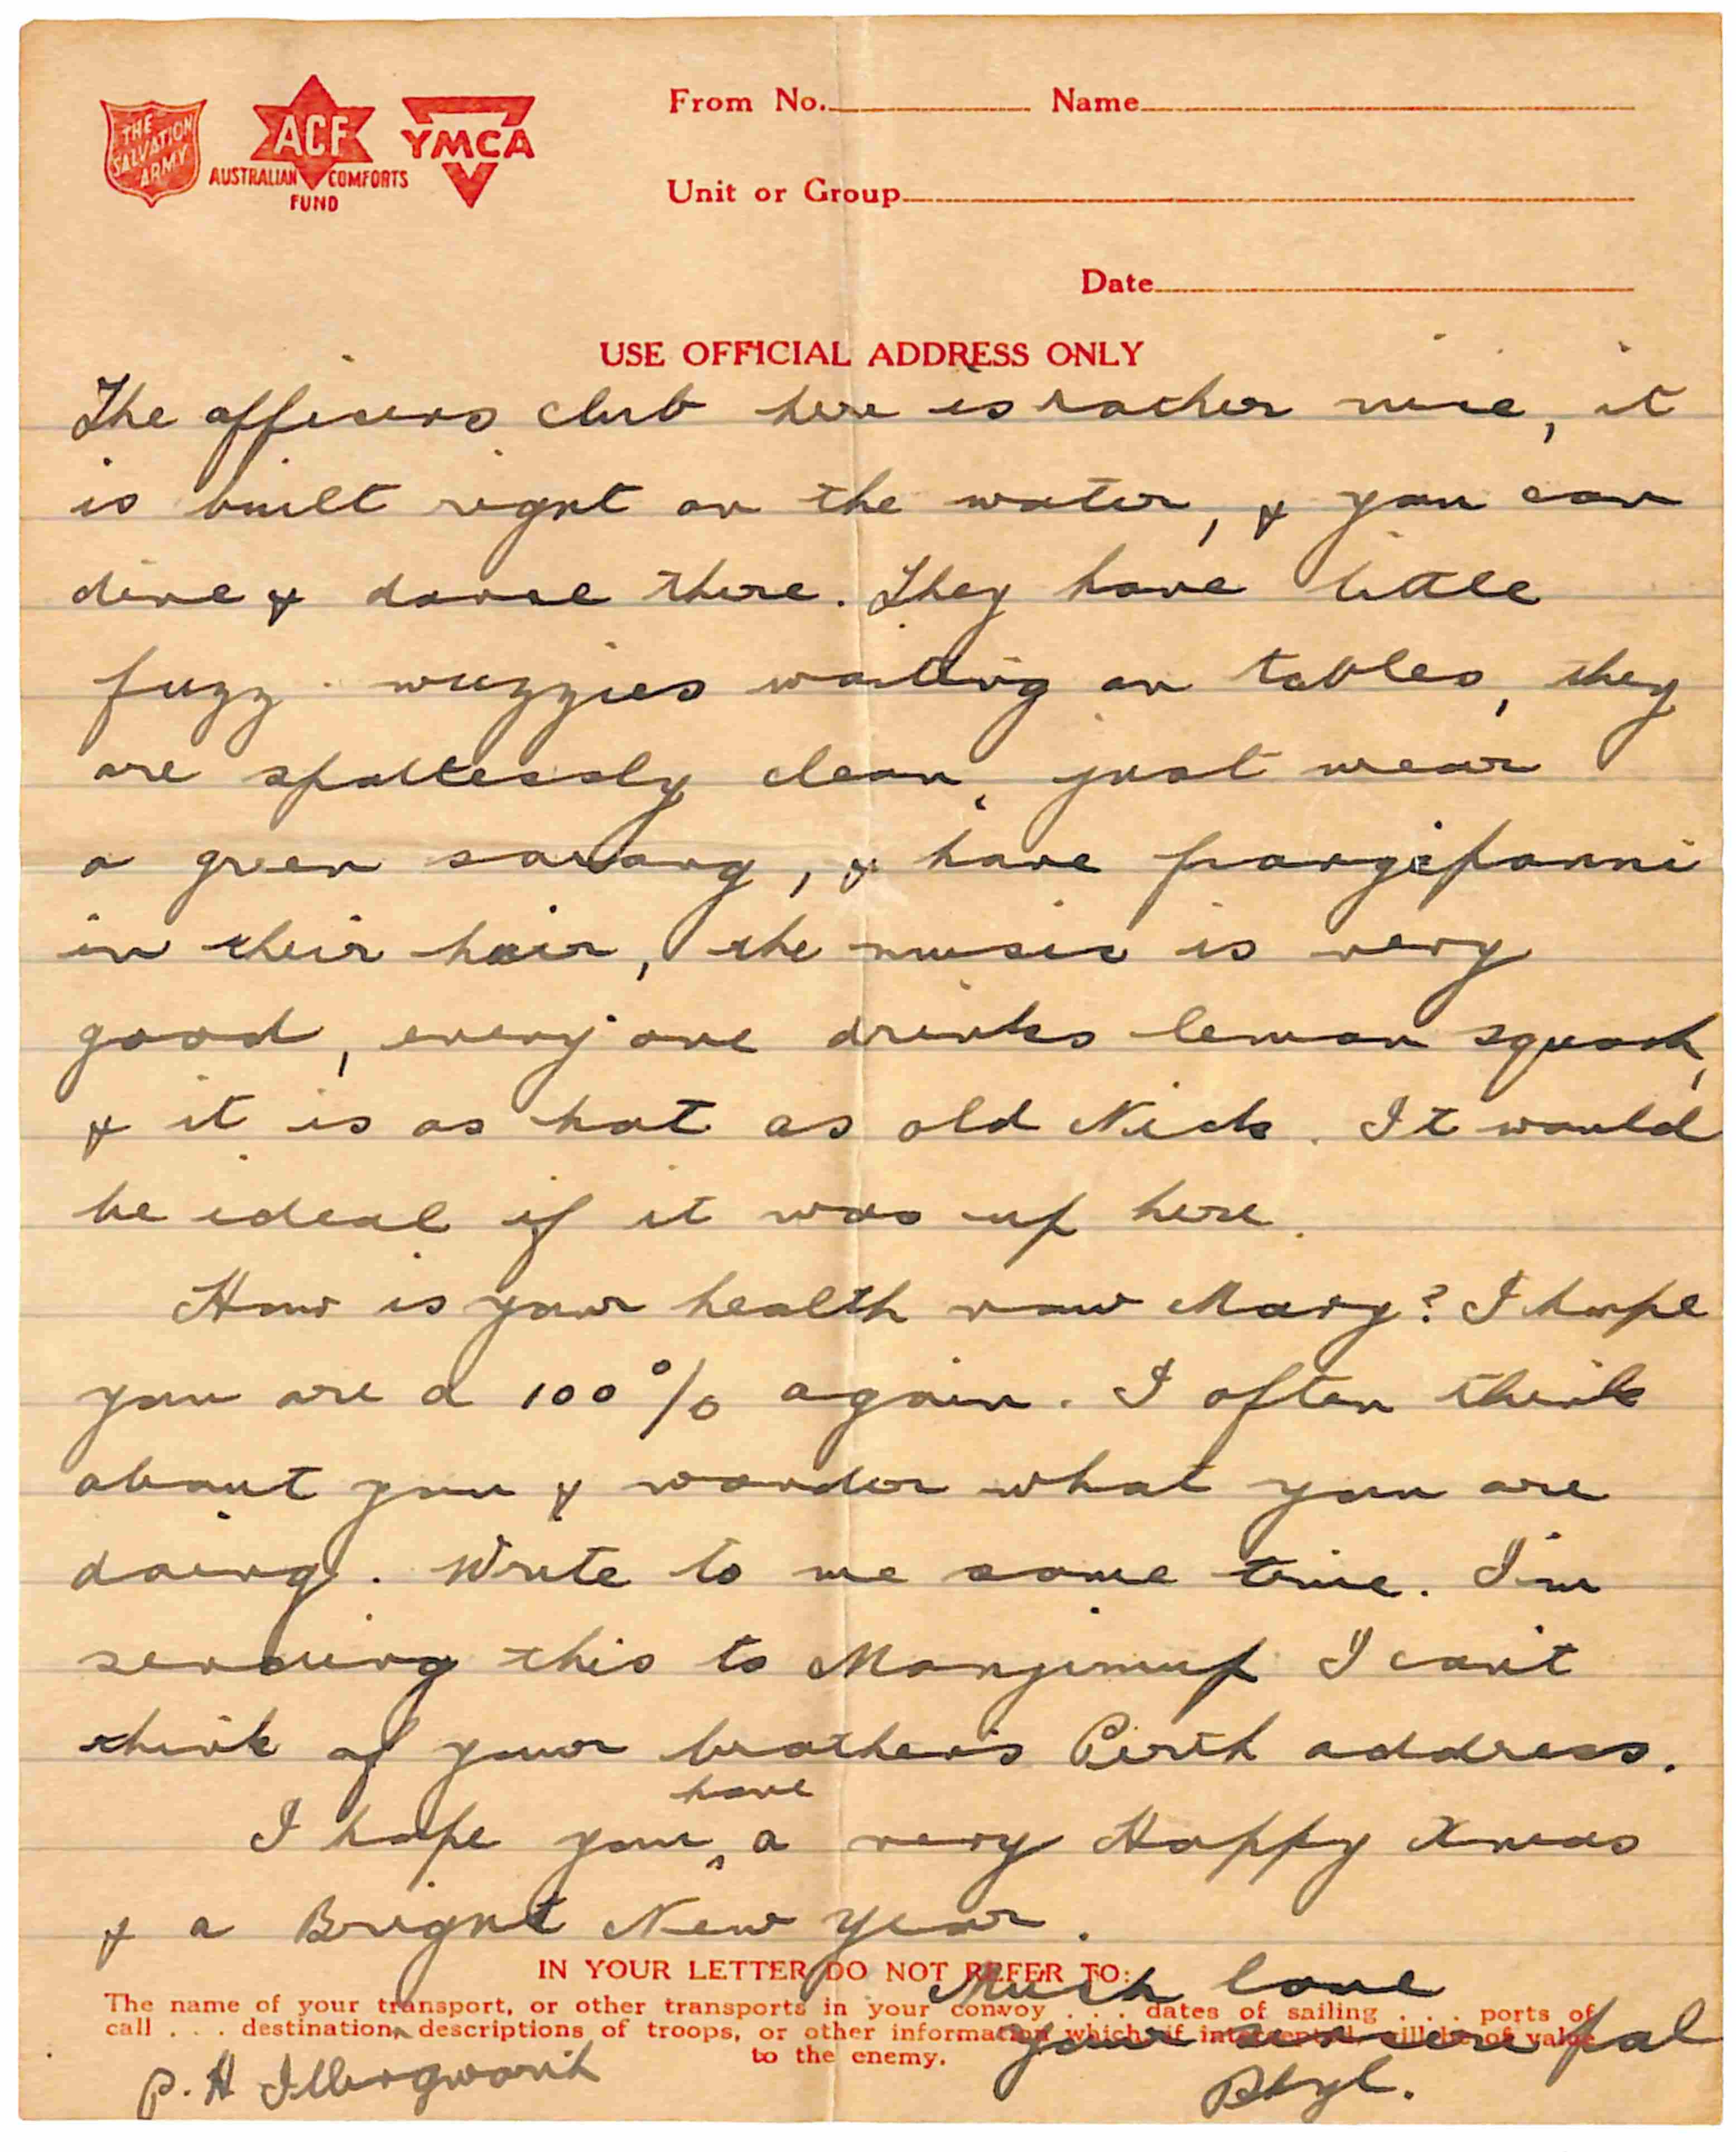 THE
SALVATION
ARMY
ACF
AUSTRALIAN COMFORTS
FUND
YMCA
From No. Name
Unit or Group
Date
USE OFFICIAL ADDRESS ONLY
The officers club here is rather nice, it
is built right on the water, & you can
dine & dance there. They have little
fuzz-wuzzies waiting on tables, they
are spotlessly clean, just wear
a green sarong, & have frangipanni
in their hair, the music is very
good, every one drinks lemon squash,
& it is as hot as old Nick. It would
be ideal if it was up here.
How is your health now Mary? I hope
you are a 100% again. I often think
about you & wonder what you are
doing. Write to me some time. I'm
sending this to Manjimup I can't
think of your brother's Perth address.
have
I hope you ^ a very Happy Xmas
& a Bright New Year.
IN YOUR LETTER DO NOT REFER TO:
Much love
The name of your transport, or other transports in your convoy . . . dates of sailing . . . ports of
call . . . destination, descriptions of troops, or other information which, if intercepted, will be of value
to the enemy.
your sincere pal
P. H Illingworth